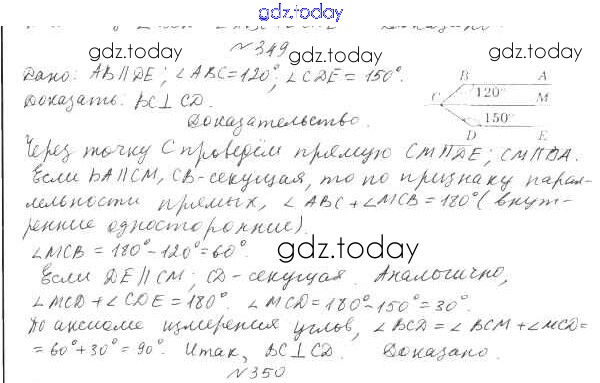 gdz.today
Доказано.
gdz.today gdz.today
№349
Дано: AB∥DE; ∠ABC=120°; ∠CDE=150°.
Доказать: BC⊥CD.
B A
120°
C M
150°
D E
Доказательство.
Через точку C проведём прямую CM∥DE; CM∥BA.
Если BA∥CM, CB-секущая, то по признаку парал-
лельности прямых, ∠ABC+∠MCB=180° (внут-
ренние односторонние).
∠MCB=180°-120°=60°.
gdz.today
Если DE∥CM; CD-секущая. Аналогично,
∠MCD+∠CDE=180°. ∠MCD=180°-150°=30°.
По аксиоме измерения углов, ∠BCD=∠BCM+∠MCD=
=60°+30°=90°. Итак, BC⊥CD. Доказано.
№350
gdz.today